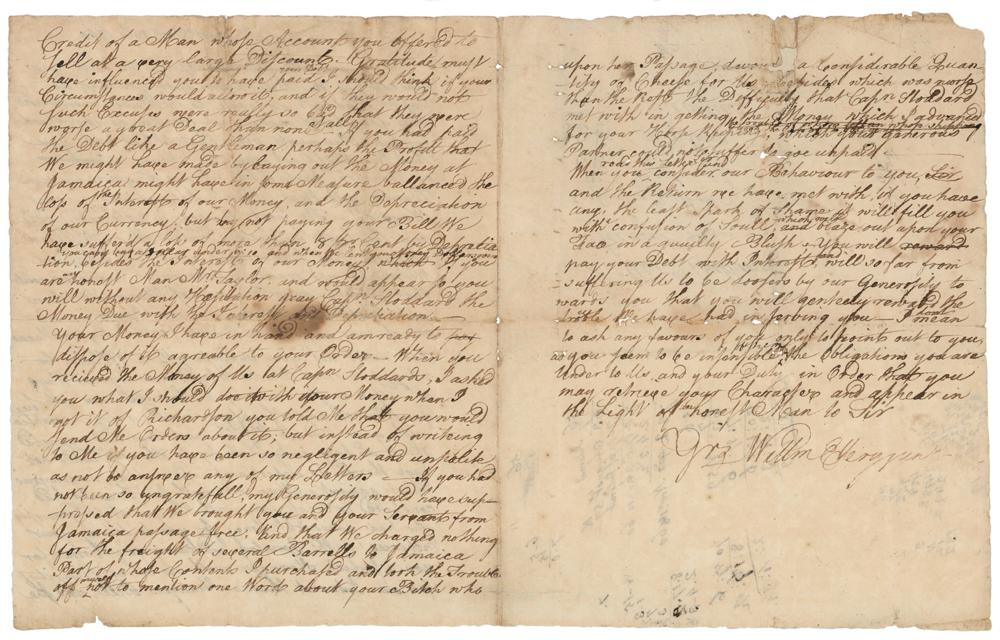 Credit of a Man whose Account you offered to
sell at a very large Discount. Gratitude must
have influenced you to have paid I should think if your
Circumstances would allow it, and if they would not
Such Excuses were really so bad that they were
worse a great Deal than none at all. If you had paid
the Debt like a Gentleman perhaps the Profit that
We might have made by laying out the Money at
Jamaica might have in some Measure ballanced the
loss of the Interest of our Money, and the Depreciation
of our Currency, but by not paying your Bill We
have suffered a loss of more than 8 pr Cent by Depretia-
tion, besides the Interest of our Money which if you
are an honest Man Mr. Taylor, and would appear so you
will without any Hesitation pay Capn Stoddard the
Money Due with the Interest and Depretiation —
Your Money I have in hand and am ready to
dispose of it agreable to your Order — When you
recieved the Money of Us at Capn Stoddards, I asked
you what I should doe with your Money when I
got it of Richardson you told Me that you would
send Me Orders about it; but instead of writing
to Me if you have been so negligent and unpolite
as not to answer any of my Letters — If you had
not been so ungratefull, my Generosity would have sup-
pressed that We brought you and your Servant from
Jamaica passage free; And that We charged nothing
for the freight of several Barrells to Jamaica
Part of whose Contents I purchased and took the Trouble
off not to mention one Word about your Bitch who
upon her Passage devour'd a Considerable Quan-
tity of Cheese for Us besides which was worse
than the Rest the Difficulty that Capn Stoddard
met with in getting the Money which I advanced
for your Horse Keeping, which that Generous
Partner could not suffer to goe unpaid —
When you read this letter and consider our Behaviour to you, Sir
and the Return we have met with, if you have
the least Spark of Shame it will fill you
with confusion of Soull, and blaze out upon your
Face in a guilty Blush — You will reward
pay your Debt with Interest, and will so far from
suffering Us to be loosers by our Generosity to
wards you that you will genteely reward the
little We have had in serving you — I don't mean
to ask any favours of you only to point out to you,
as you seem to be insensible, the Obligations you are
under to Us, and your Duty in Order that you
may retrieve your Character and appear in
the Light of an honest Man to Sir
Yrs Willm